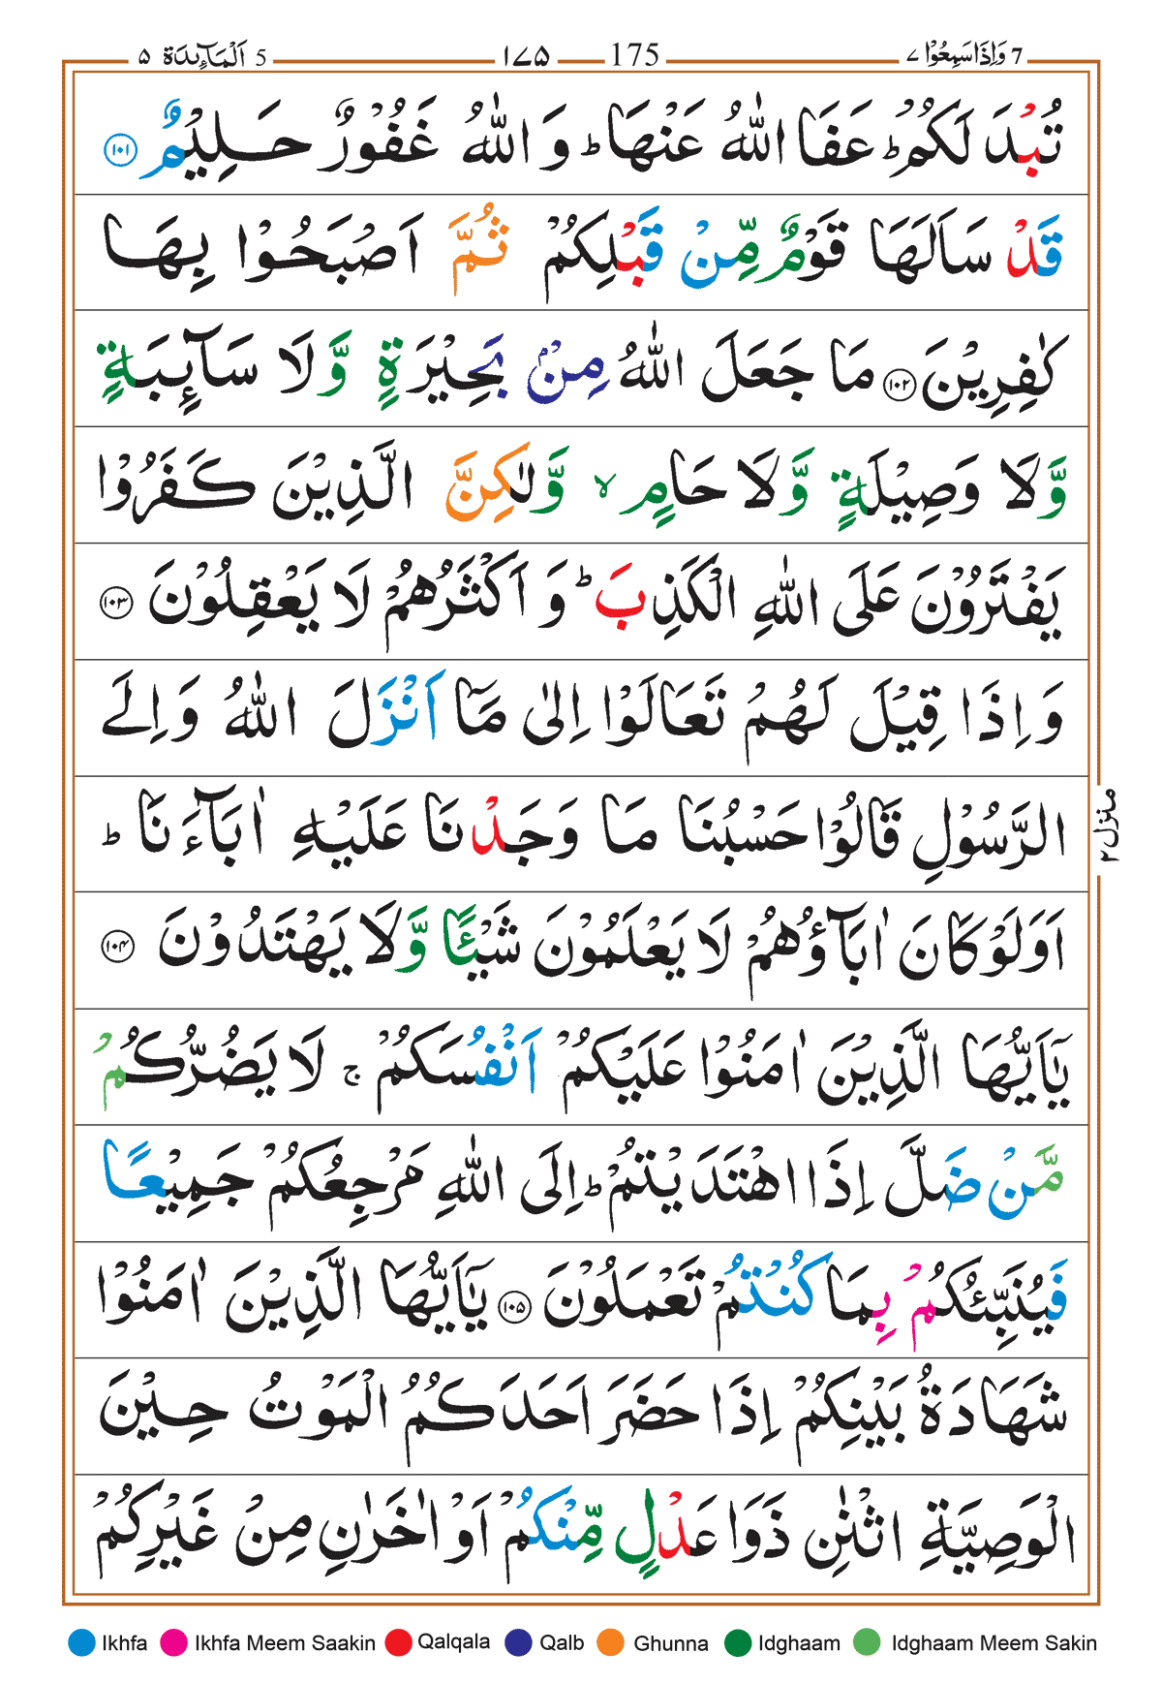 7 وَاِذَاسَمِعُوْا ۷
175 ۱۷۵
5 اَلْمَآئِدَة ۵
تُبْدَ لَكُمْ ؕ عَفَا اللّٰهُ عَنْهَا ؕ وَ اللّٰهُ غَفُوْرٌ حَلِيْمٌ ۱۰۱
قَدْ سَاَلَهَا قَوْمٌ مِّنْ قَبْلِكُمْ ثُمَّ اَصْبَحُوْا بِهَا
كٰفِرِيْنَ ۱۰۲ مَا جَعَلَ اللّٰهُ مِنْۢ بَحِيْرَةٍ وَّلَا سَآئِبَةٍ
وَّلَا وَصِيْلَةٍ وَّلَا حَامٍ ۙ وَّلٰكِنَّ الَّذِيْنَ كَفَرُوْا
يَفْتَرُوْنَ عَلَى اللّٰهِ الْكَذِبَ ؕ وَ اَكْثَرُهُمْ لَا يَعْقِلُوْنَ ۱۰۳
وَاِذَا قِيْلَ لَهُمْ تَعَالَوْا اِلٰى مَآ اَنْزَلَ اللّٰهُ وَاِلَى
الرَّسُوْلِ قَالُوْا حَسْبُنَا مَا وَجَدْنَا عَلَيْهِ اٰبَآءَنَا ؕ
اَوَلَوْ كَانَ اٰبَآؤُهُمْ لَا يَعْلَمُوْنَ شَيْئًا وَّلَا يَهْتَدُوْنَ ۱۰۴
يٰۤاَيُّهَا الَّذِيْنَ اٰمَنُوْا عَلَيْكُمْ اَنْفُسَكُمْ ۚ لَا يَضُرُّكُمْ
مَّنْ ضَلَّ اِذَا اهْتَدَيْتُمْ ؕ اِلَى اللّٰهِ مَرْجِعُكُمْ جَمِيْعًا
فَيُنَبِّئُكُمْ بِمَا كُنْتُمْ تَعْمَلُوْنَ ۱۰۵ يٰۤاَيُّهَا الَّذِيْنَ اٰمَنُوْا
شَهَادَةُ بَيْنِكُمْ اِذَا حَضَرَ اَحَدَكُمُ الْمَوْتُ حِيْنَ
الْوَصِيَّةِ اثْنٰنِ ذَوَا عَدْلٍ مِّنْكُمْ اَوْ اٰخَرٰنِ مِنْ غَيْرِكُمْ
منزل ۲
Ikhfa Ikhfa Meem Saakin Qalqala Qalb Ghunna Idghaam Idghaam Meem Sakin